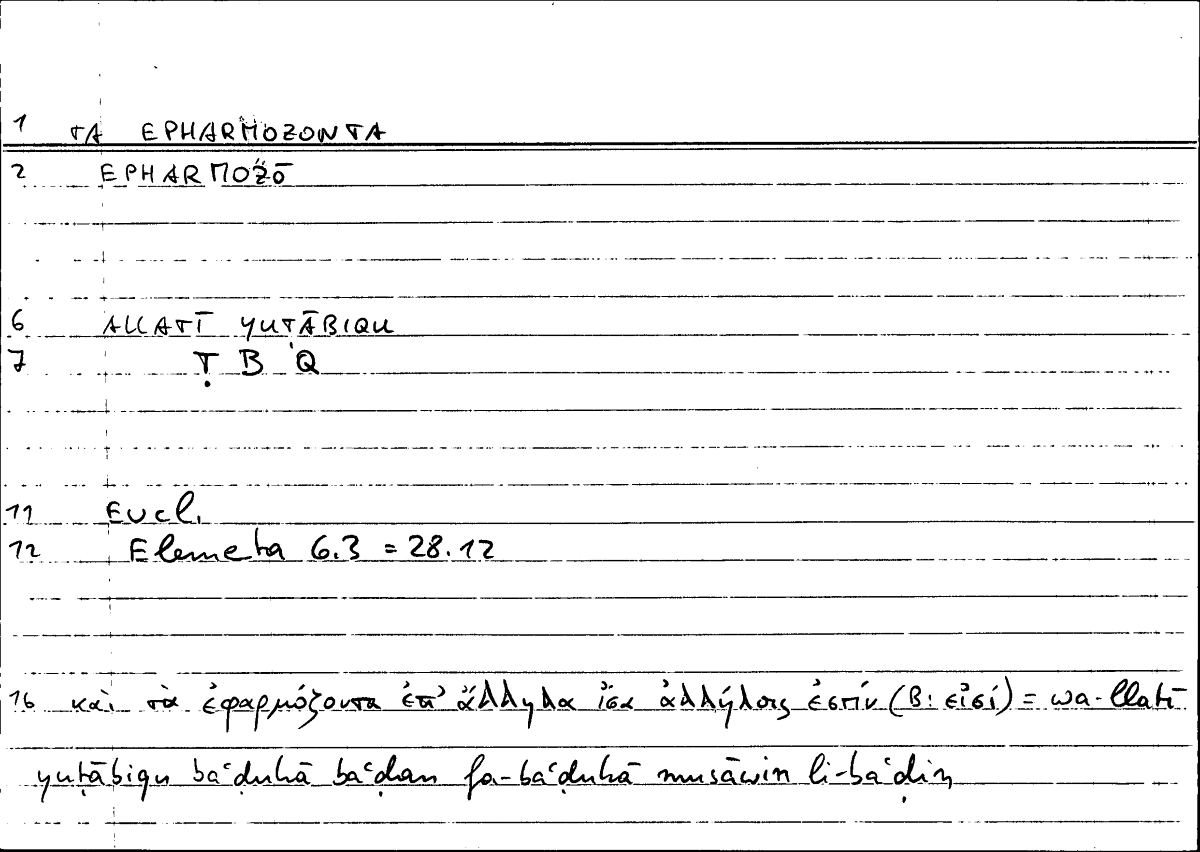 1 TA EPHARMOZONTA
2 EPHARMOZŌ
6 ALLATĪ YUTĀBIQU
7 Ṭ B Q
11 Eucl.
12 Elemeta 6.3 = 28.12
16 καὶ τὰ ἐφαρμόζοντα ἐπ' ἄλληλα ἴσα ἀλλήλοις ἐστίν (B: εἰσί) = wa-llatī
yuṭābiqu baʿḍuhā baʿḍan fa-baʿḍuhā musāwin li-baʿḍin